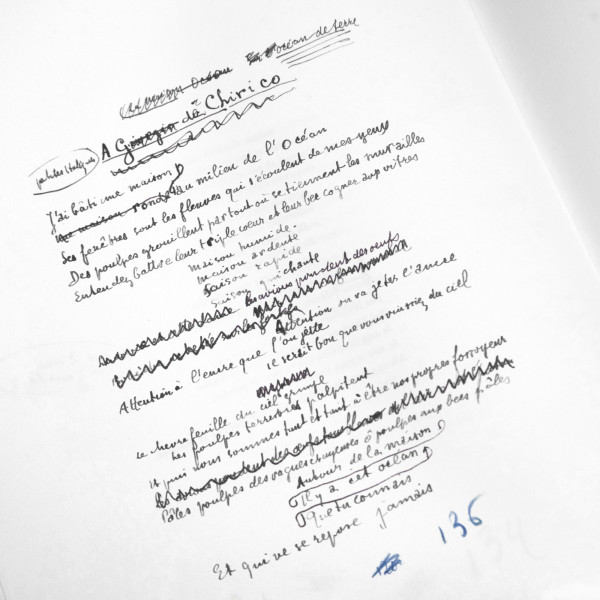 Océan Océan de terre
A G. de Chirico
J'ai bâti une maison au milieu de l'Océan
Ses fenêtres sont les fleuves qui s'écoulent de mes yeux
Des poulpes grouillent partout où se tiennent les murailles
Entendez battre leur triple cœur et leur bec cogner aux vitres
Maison humide.
Maison ardente
Saison rapide
Saison qui chante
Les avions pondent des oeufs
Attention on va jeter l'ancre
Attention à l'encre que l'on jette
Il serait bon que vous vinssiez du ciel
Le chèvrefeuille du ciel grimpe
Les poulpes terrestres palpitent
Et puis nous sommes tant et tant à être nos propres fossoyeurs
Pâles poulpes des vagues crayeuses ô poulpes aux becs pâles
Autour de la maison
Il y a cet océan
Que tu connais
Et qui ne se repose jamais
136